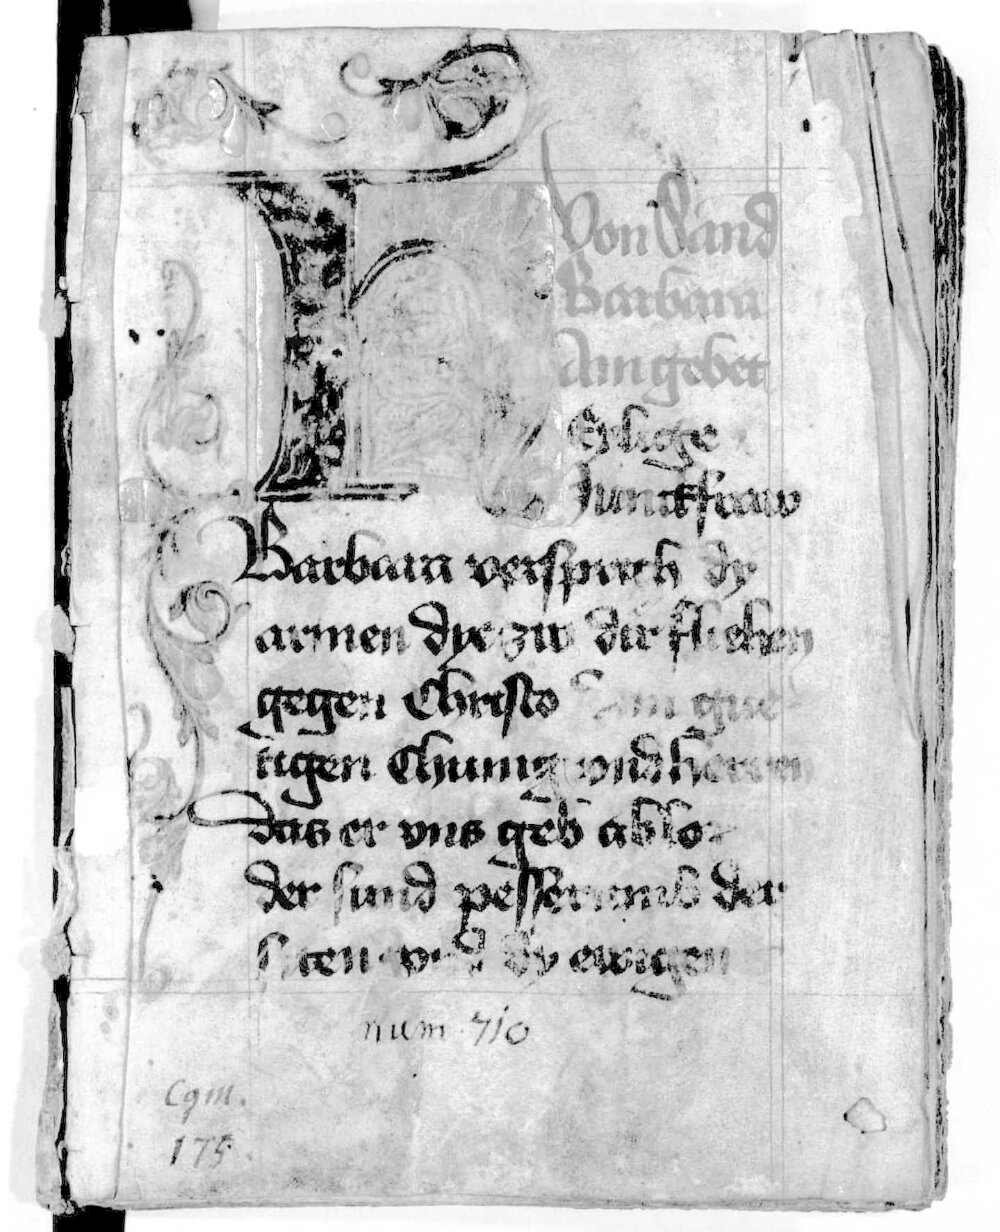 Von Sand
Barbara
Ain gebet
H Erlige
Junckfraw
Barbara versprich dy
armen dye zw dir fliehen
gegen Christo dem gue-
tigen Chunig vnd herren
das er vns geb ablos
der sund pesserung der
siten vnd dy ewigen
num. 710
Cgm.
175